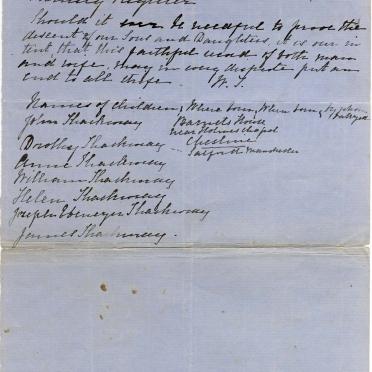 Family Register
Should it ever be needful to prove the
descent of our Sons and Daughters, it is our in
tent that this faithful word of both man
and wife may in every dispute put an
end to all strife. W. T.
Names of children, Where born, When born, by whom baptized
John Thackway Barnets House
near Holmes Chapel
Dorothy Thackway Cheshire
Salford Manchester
Anne Thackway
William Thackway
Helen Thackway
Joseph Ebenezer Thackway
James Thackway.